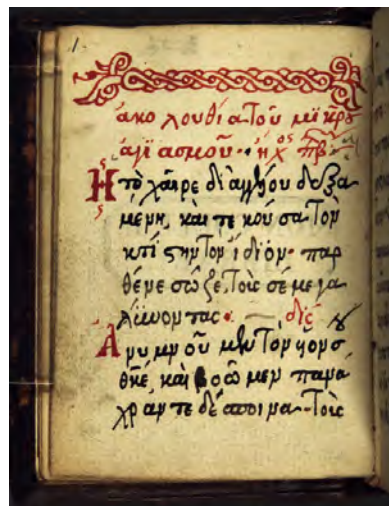 ἀκολουθία τοῦ μικρο
ἁγιασμοῦ· ἦχος
Ἡ τὸ χαῖρε δι ἀγγέλου δεξα
μένη, καὶ τεκοῦσα τὸν
κτίστην τὸν ἴδιον· παρ
θένε σῶζε τοὺς σὲ μεγα
λύνοντας· δίς
Ἀνυμνοῦμεν τὸν υἱόν σ
θκε, καὶ βοῶμεν πανά
χραντε δέσποινα τοὺς